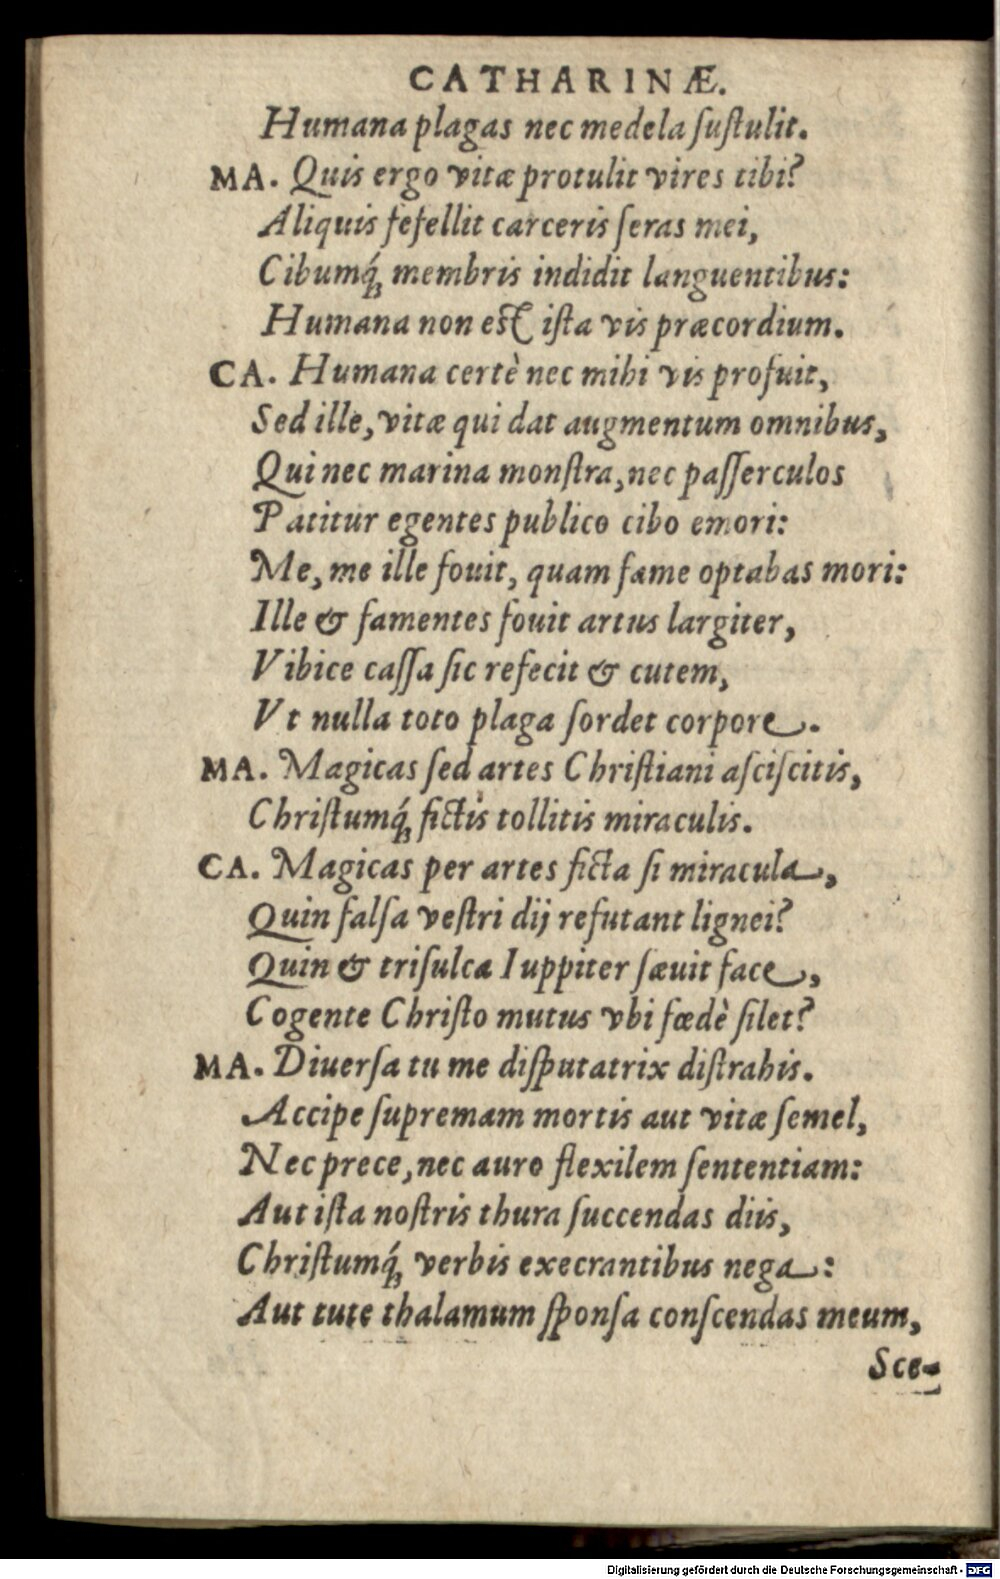 CATHARINÆ.
Humana plagas nec medela ſuſtulit.
MA. Quis ergo vitæ protulit vires tibi?
Aliquis fefellit carceris ſeras mei,
Cibumq́; membris indidit languentibus:
Humana non eſt iſta vis præcordium.
CA. Humana certè nec mihi vis profuit,
Sed ille, vitæ qui dat augmentum omnibus,
Qui nec marina monſtra, nec paſſerculos
Patitur egentes publico cibo emori:
Me, me ille fouit, quam fame optabas mori:
Ille & famentes fouit artus largiter,
Vibice caſſa ſic refecit & cutem,
Vt nulla toto plaga ſordet corpore.
MA. Magicas ſed artes Chriſtiani aſciſcitis,
Chriſtumq́; fictis tollitis miraculis.
CA. Magicas per artes ficta ſi miracula,
Quin falſa veſtri dij refutant lignei?
Quin & triſulca Iuppiter ſæuit face,
Cogente Chriſto mutus vbi fœdè ſilet?
MA. Diuerſa tu me diſputatrix diſtrahis.
Accipe ſupremam mortis aut vitæ ſemel,
Nec prece, nec auro flexilem ſententiam:
Aut iſta noſtris thura ſuccendas diis,
Chriſtumq́; verbis execrantibus nega:
Aut tute thalamum ſponſa conſcendas meum,
Sce-
Digitalisierung gefördert durch die Deutsche Forschungsgemeinschaft - DFG